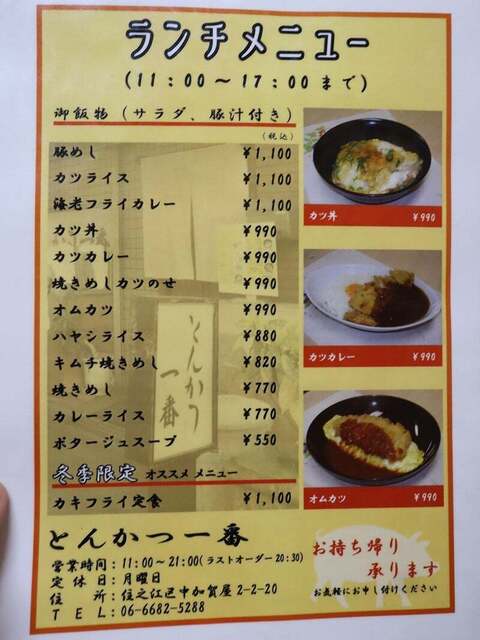 ランチメニュー
(11：00～17：00まで)
御飯物（サラダ、豚汁付き）
(税込)
豚めし ¥1,100
カツライス ¥1,100
海老フライカレー ¥1,100
カツ丼 ¥990
カツカレー ¥990
焼きめしカツのせ ¥990
オムカツ ¥990
ハヤシライス ¥880
キムチ焼きめし ¥820
焼きめし ¥770
カレーライス ¥770
ポタージュスープ ¥550
冬季限定 オススメ メニュー
カキフライ定食 ¥1,100
カツ丼 ¥990
カツカレー ¥990
オムカツ ¥990
とんかつ一番
とんかつ一番
営業時間：11:00～21:00(ラストオーダー20:30)
定休日：月曜日
住所：住之江区中加賀屋2-2-20
TEL：06-6682-5288
お持ち帰り
承ります
お気軽にお申し付けください